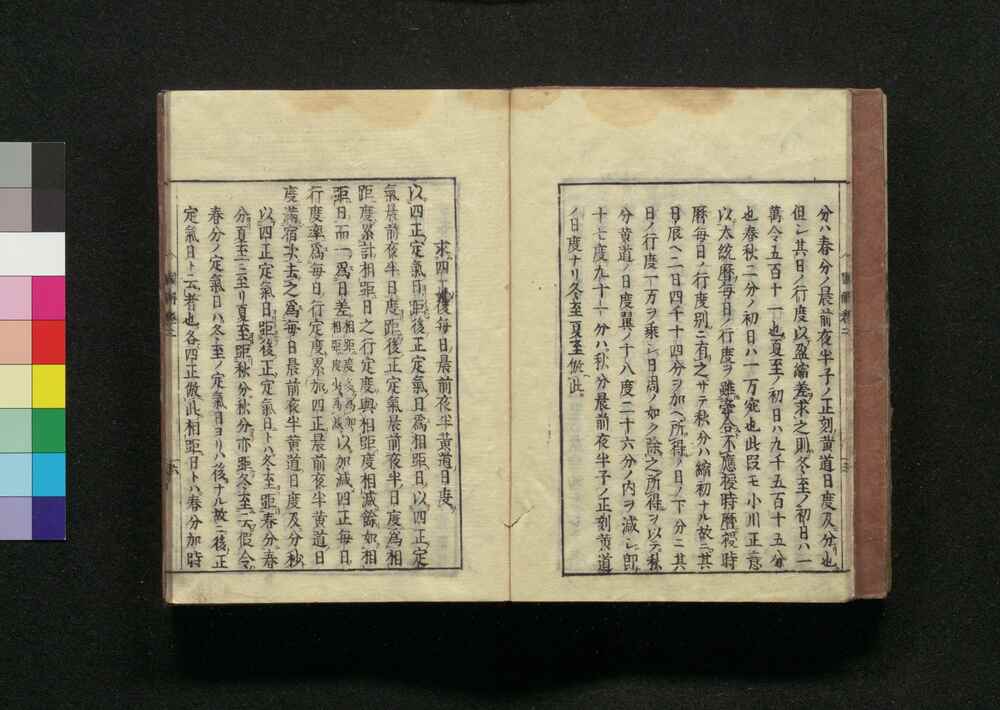 分ハ春分ノ晨前夜半子ノ正刻黄道日度及分也
但シ其日ノ行度以盈縮差求之則冬至ノ初日ハ一
萬令五百十一也夏至ノ初日ハ九千五百十五分
也春秋二分ノ初日ハ一万定也此段モ小川正意
以大統暦毎日ノ行度ヲ雖考合不應授時暦授時
暦毎日ノ行度別ニ有之サテ秋分ハ縮初ナル故ニ其
日ノ辰ヘ二日四千十四分ヲ加ヘ所得ノ日ノ下分ニ其
日ノ行度一万ヲ乗シ日周ノ如ク除之所得ヲ以テ秋
分黄道ノ日度翼ノ十八度二十六分ノ内ヲ減シ即
十七度九十一分ハ秋分晨前夜半子ノ正刻黄道
ノ日度ナリ冬至夏至倣此
求四正後毎日晨前夜半黄道日度
以四正定氣日距後正定氣日爲相距日以四正定
氣晨前夜半日度距後正定氣晨前夜半日度爲相
距度累計相距日之行定度與相距度相減餘如相
距日而一爲日差相距度多爲加相距度少爲減以加減四正毎日
行度率爲毎日行定度累加四正晨前夜半黄道日
度滿宿次去之爲毎日晨前夜半黄道日度及分秒
以四正定氣日距後正定氣日トハ冬至距春分春
分夏至ニ至リ夏至距秋分秋分亦距冬至云假令
春分ノ定氣日ハ冬至ノ定氣日ヨリハ後ナル故ニ後正
定氣日ト云者也各四正倣此相距日トハ春分加時